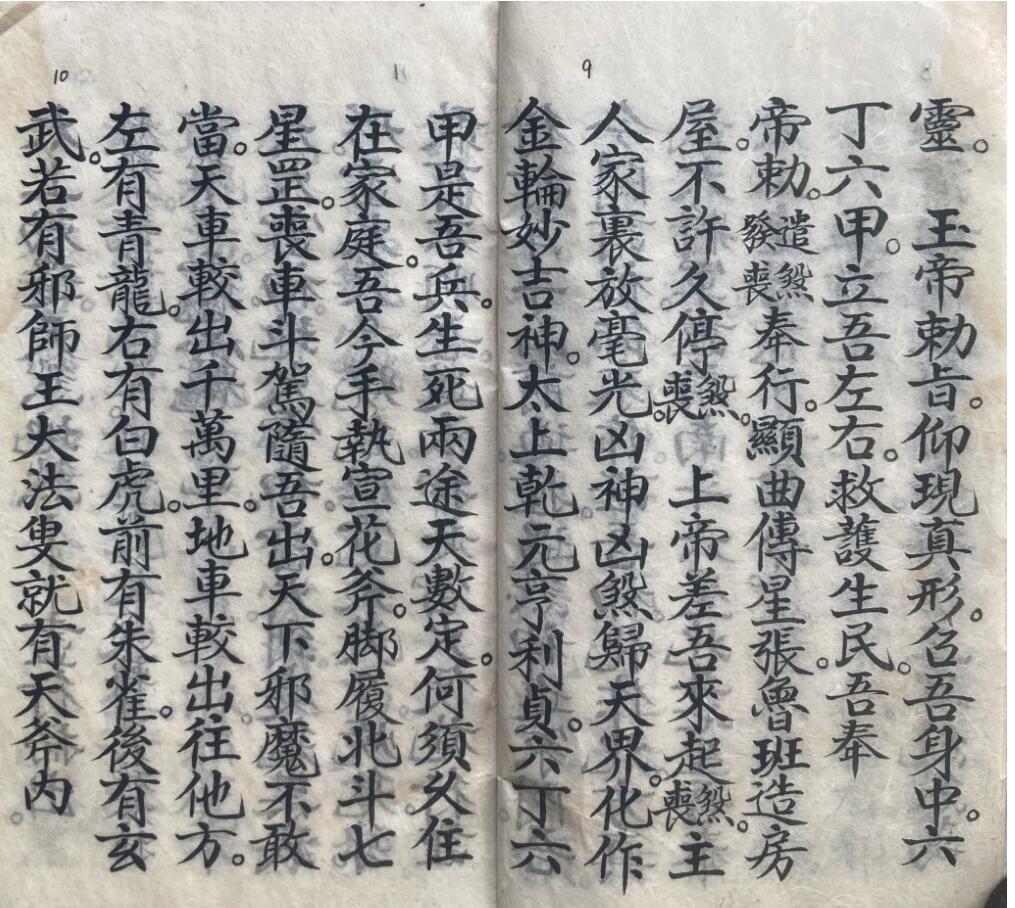 8
靈。 玉帝勅旨。仰現真形。召吾身中。六
丁六甲。立吾左右。救護生民。吾奉
帝勅。遣煞發喪奉行。顯曲傳星張。魯班造房
屋。不許久停煞喪。 上帝差吾來起煞喪。主
人家裏放毫光。凶神凶煞歸天界。化作
金輪妙吉神。太上乾元亨利貞。六丁六
9
11
甲是吾兵。生死兩途天數定。何須久住
在家庭。吾今手執宣花斧。脚履北斗七
星罡。喪車斗駕隨吾出。天下邪魔不敢
當。天車較出千萬里。地車較出往他方。
左有青龍。右有白虎。前有朱雀。後有玄
武。若有邪師王大法叟就有天斧內
10